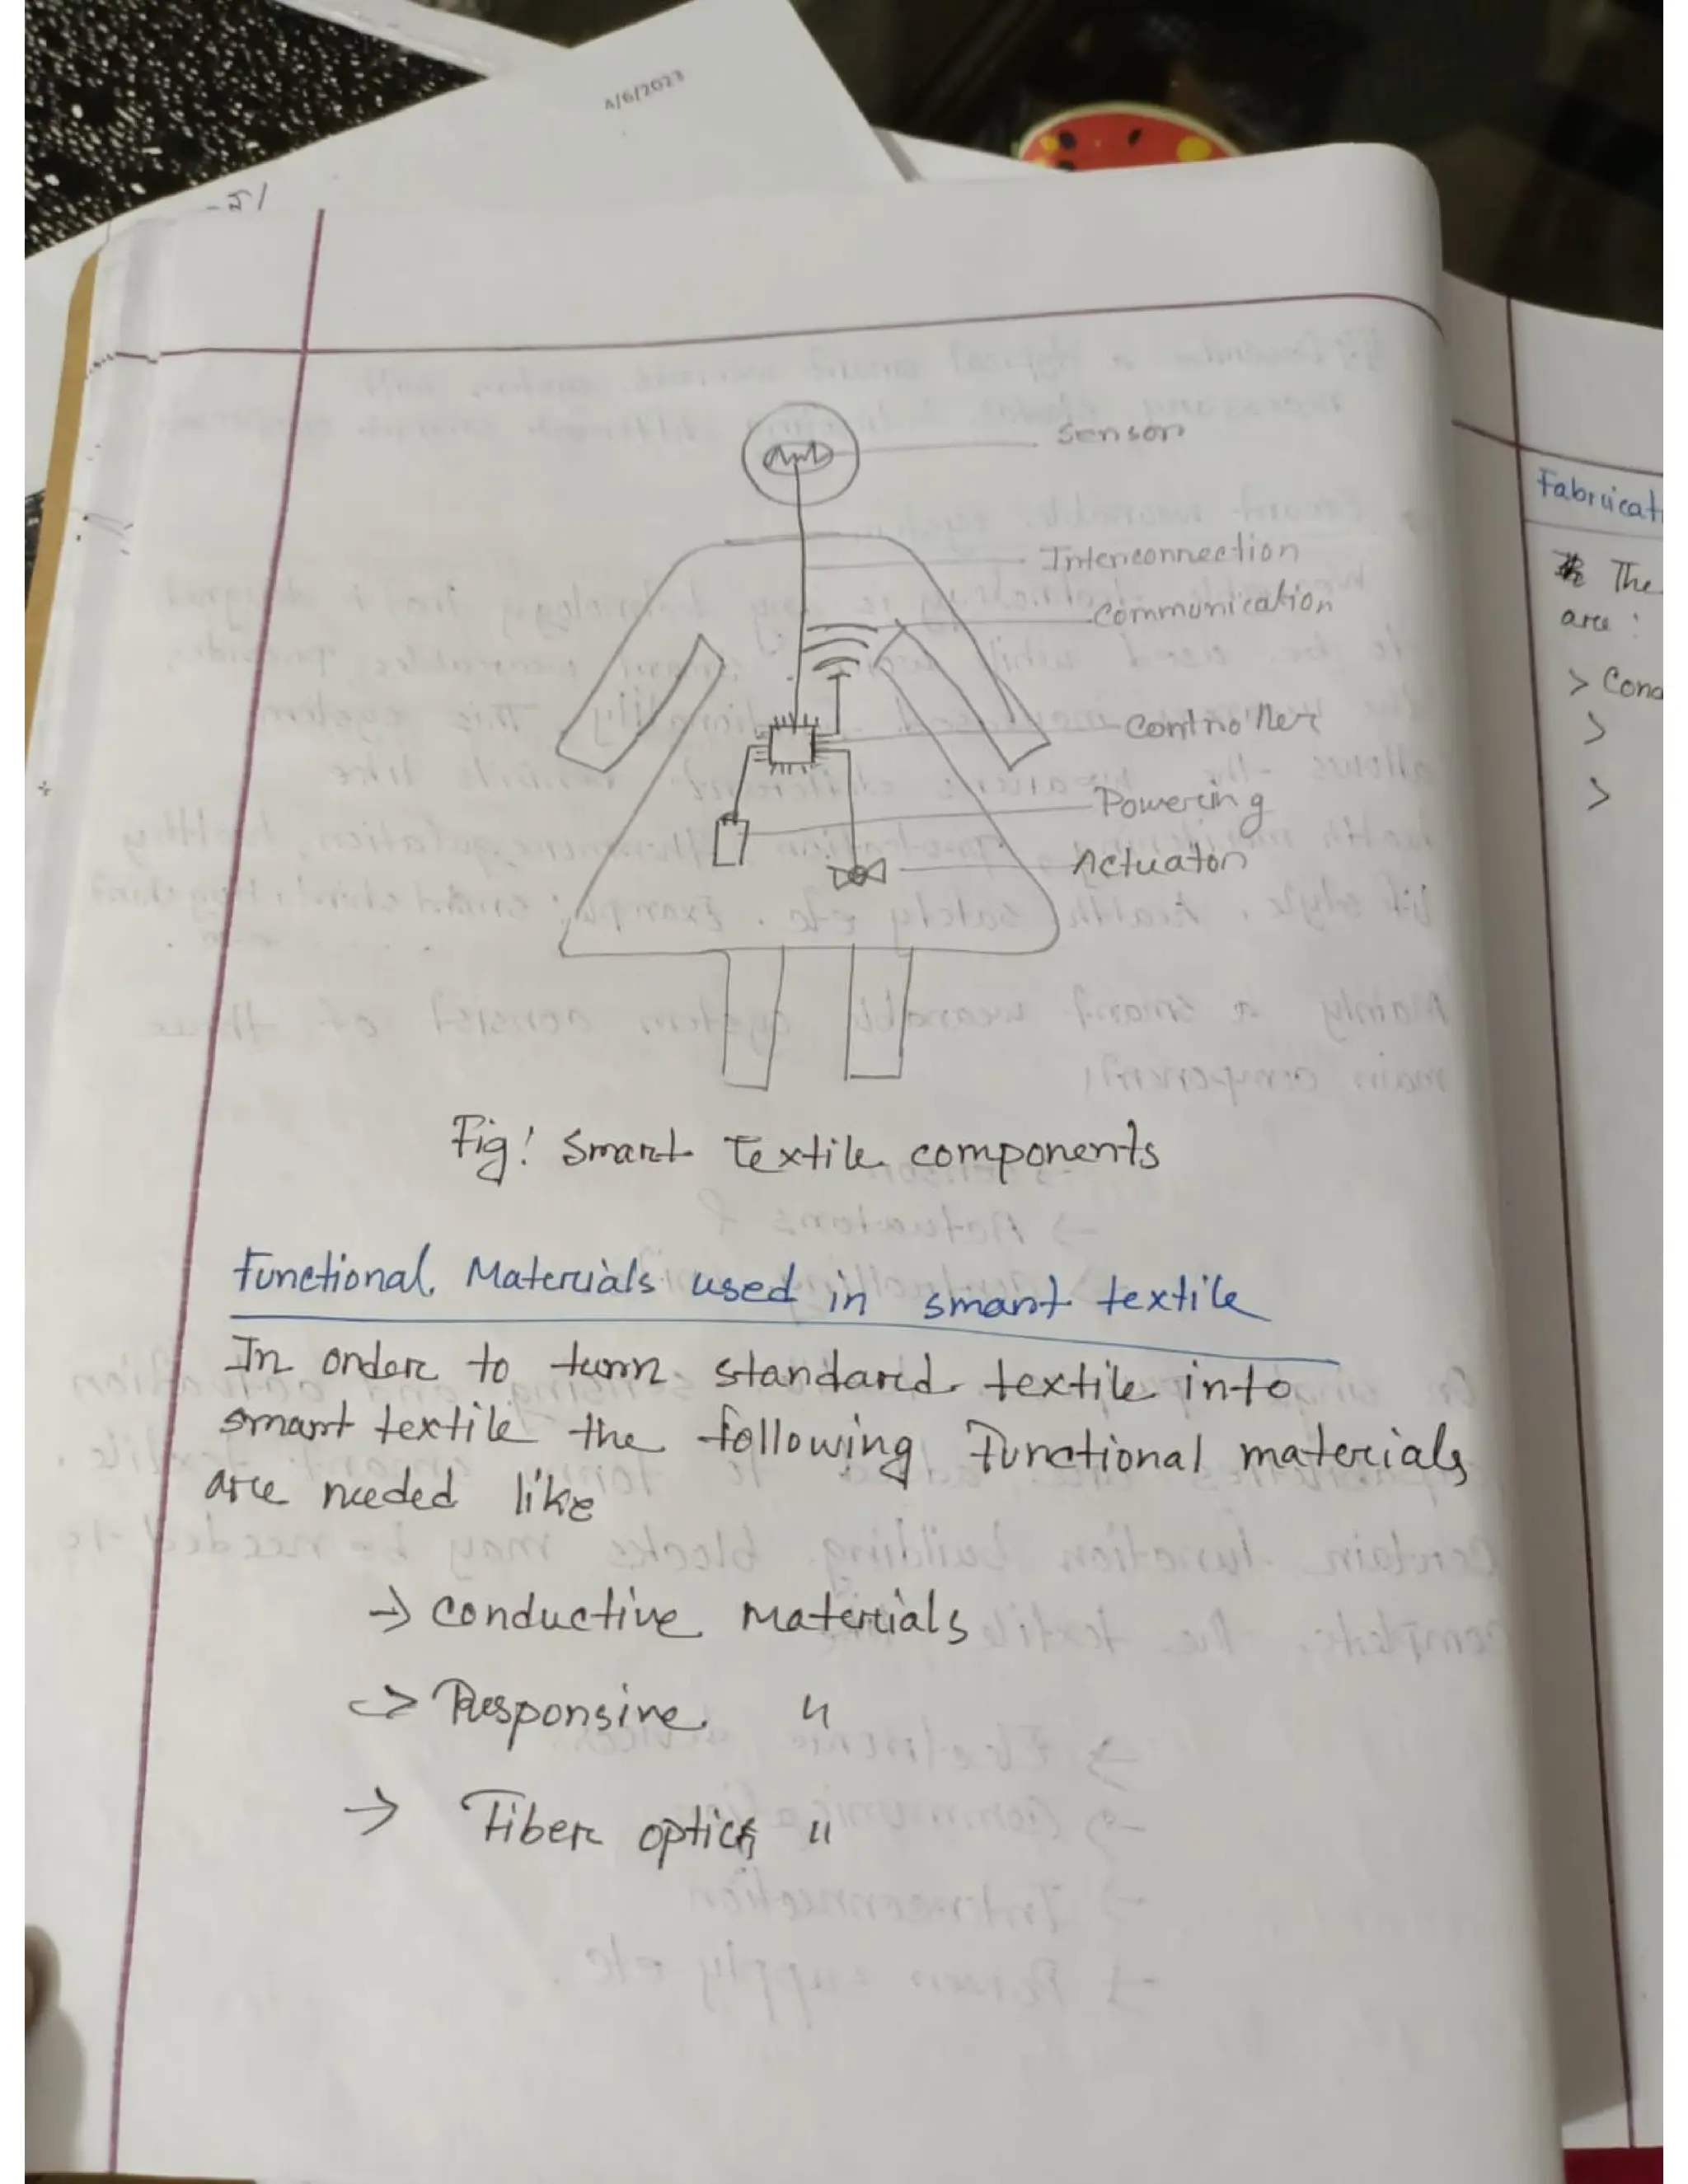 4/6/2023
Sensor
Interconnection
Communication
Controller
Powering
Actuator
Fig: Smart Textile components
Functional Materials used in smart textile
In order to turn standard textile into
smart textile the following Functional materials
are needed like
→ Conductive Materials
→ Responsive "
→ Fiber optics "
Fabricati
The
are :
> Cond
>
>